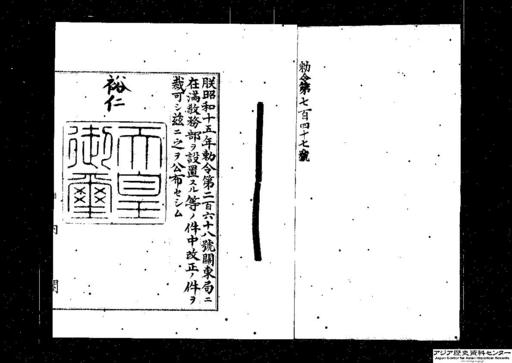 勅令第七百四十七號
朕昭和十五年勅令第二百六十八號關東局ニ
在滿敎務部ヲ設置スル等ノ件中改正ノ件ヲ
裁可シ茲ニ之ヲ公布セシム
裕仁
天皇
御璽
内閣
アジア歴史資料センター
Japan Center for Asian Historical Records